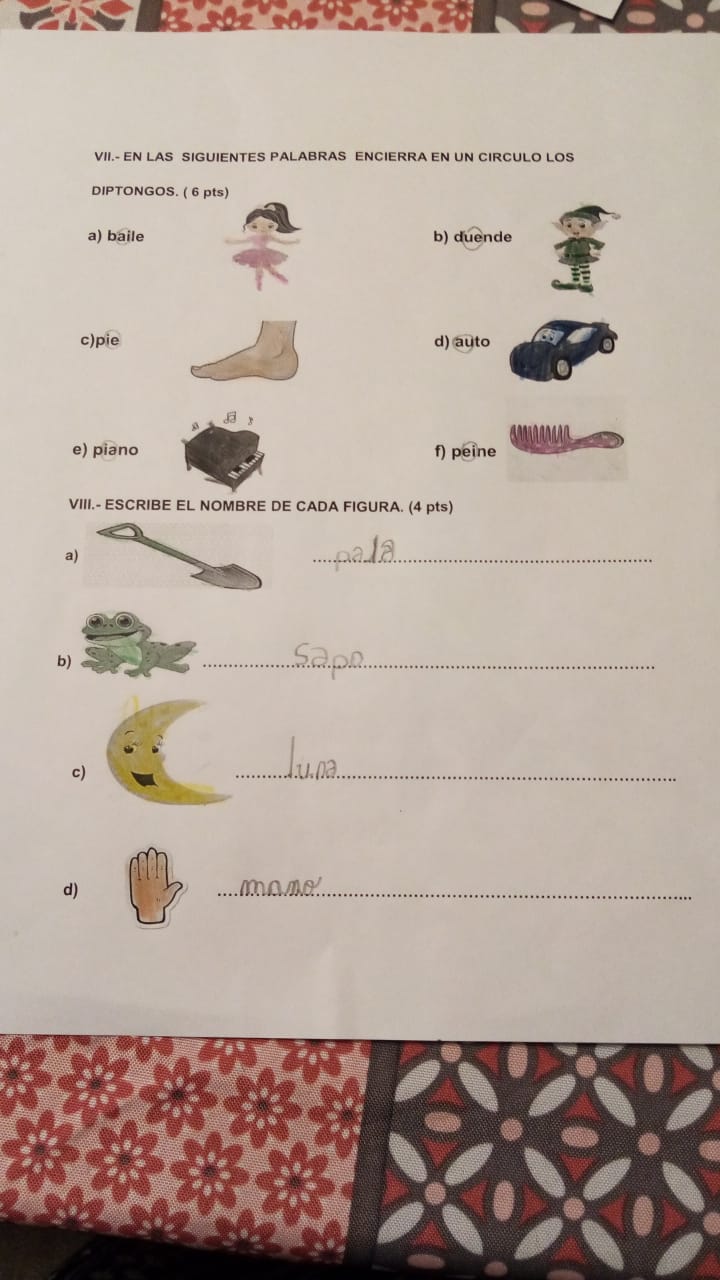 VII.- EN LAS SIGUIENTES PALABRAS ENCIERRA EN UN CIRCULO LOS
DIPTONGOS. ( 6 pts)
a) baile
b) duende
c)pie
d) auto
e) piano
f) peine
VIII.- ESCRIBE EL NOMBRE DE CADA FIGURA. (4 pts)
a) pala
b) sapo
c) luna
d) mano